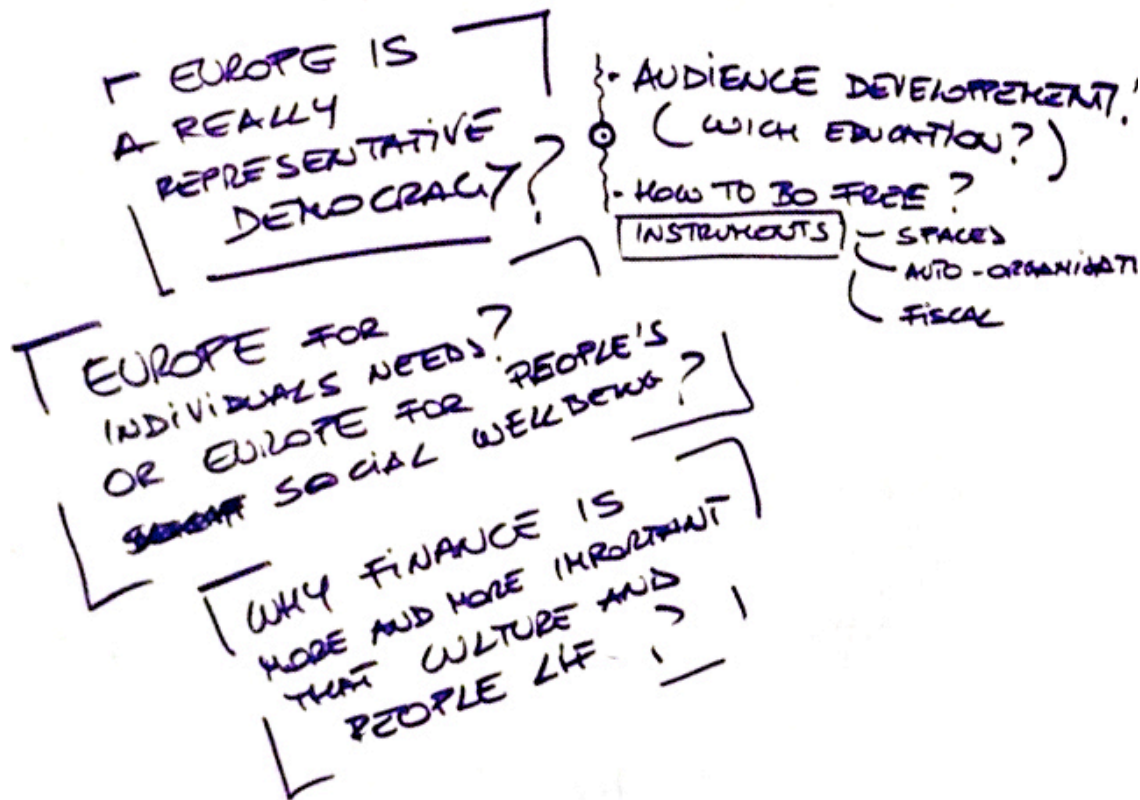 EUROPE IS
A REALLY
REPRESENTATIVE
DEMOCRACY?
- AUDIENCE DEVELOPPEMENT!
( WICH EDUCATION? )
- HOW TO BO FREE ?
INSTRUMOUTS - SPACES
AUTO-ORGANISATI
FISCAL
EUROPE FOR
INDIVIDUALS NEEDS?
OR EUROPE FOR PEOPLE'S
SOCIAL WELLBEING?
WHY FINANCE IS
MORE AND MORE IMPORTANT
THAT CULTURE AND
PEOPLE LIF ?